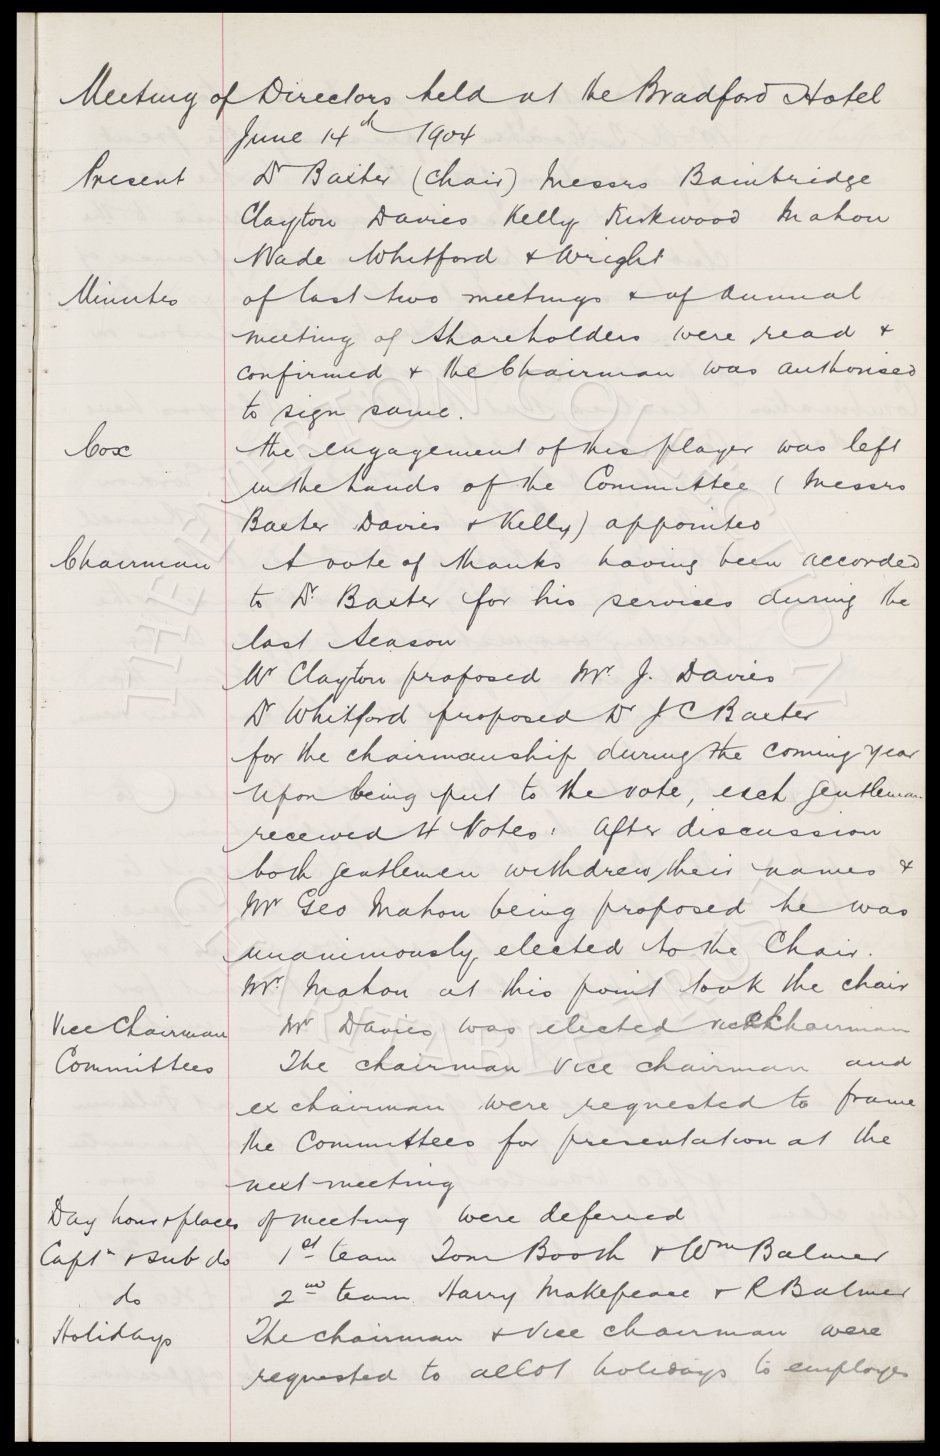 Meeting of Directors held at the Bradford Hotel
June 14th 1904
Present Dr Baxter (Chair) Messrs Bainbridge
Clayton Davies Kelly Kirkwood Mahon
Wade Whitford & Wright
Minutes of last two meetings & of Annual
meeting of Shareholders were read &
confirmed & the Chairman was authorised
to sign same.
Cox the engagement of this player was left
in the hands of the Committee (Messrs
Baxter Davies & Kelly) appointed
Chairman A vote of thanks having been accorded
to Dr Baxter for his services during the
last Season
Mr Clayton proposed Mr J. Davies
Dr Whitford proposed Dr J C Baxter
for the chairmanship during the coming year
Upon being put to the vote, each gentleman
received 4 Votes: After discussion
both gentlemen withdrew their names &
Mr Geo Mahon being proposed he was
unanimously elected to the Chair.
Mr Mahon at this point took the chair
Vice Chairman Mr Davies was elected vice Chairman
Committees The chairman vice chairman and
ex chairman were requested to frame
the Committees for presentation at the
next meeting
Day hour & places of meeting were deferred
Captn & sub do 1st team Tom Booth & Wm Balmer
do 2nd team Harry Makepeace & R Balmer
Holidays The chairman & vice chairman were
requested to allot holidays to employes